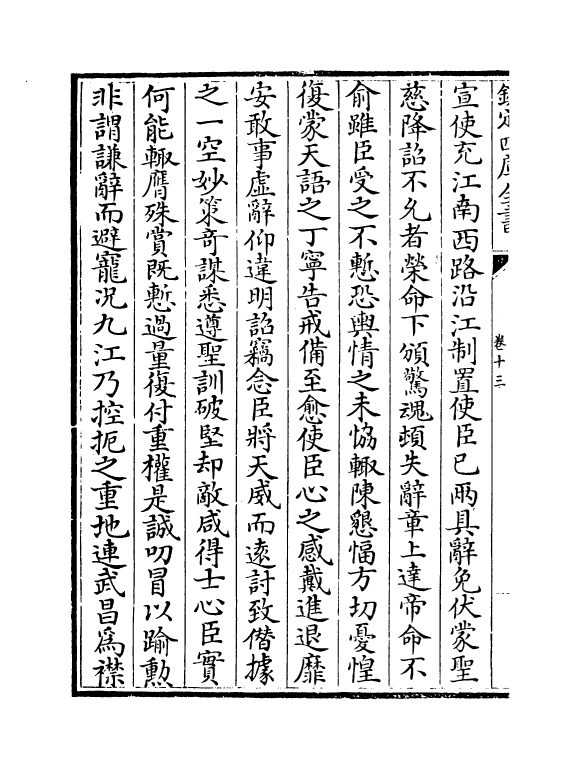 欽定四庫全書
卷十三
宣使充江南西路沿江制置使臣已兩具辭免伏蒙聖
慈降詔不允者榮命下頒驚魂頓失辭章上達帝命不
俞雖臣受之不慙恐輿情之未恊輙陳懇愊方切憂惶
復蒙天語之丁寧告戒備至愈使臣心之感戴進退靡
安敢事虛辭仰違明詔竊念臣將天威而遠討致僭據
之一空妙策奇謀悉遵聖訓破堅却敵咸得士心臣實
何能輙膺殊賞既慙過量復付重權是誠叨冒以踰勲
非謂謙辭而避寵况九江乃控扼之重地連武昌爲襟